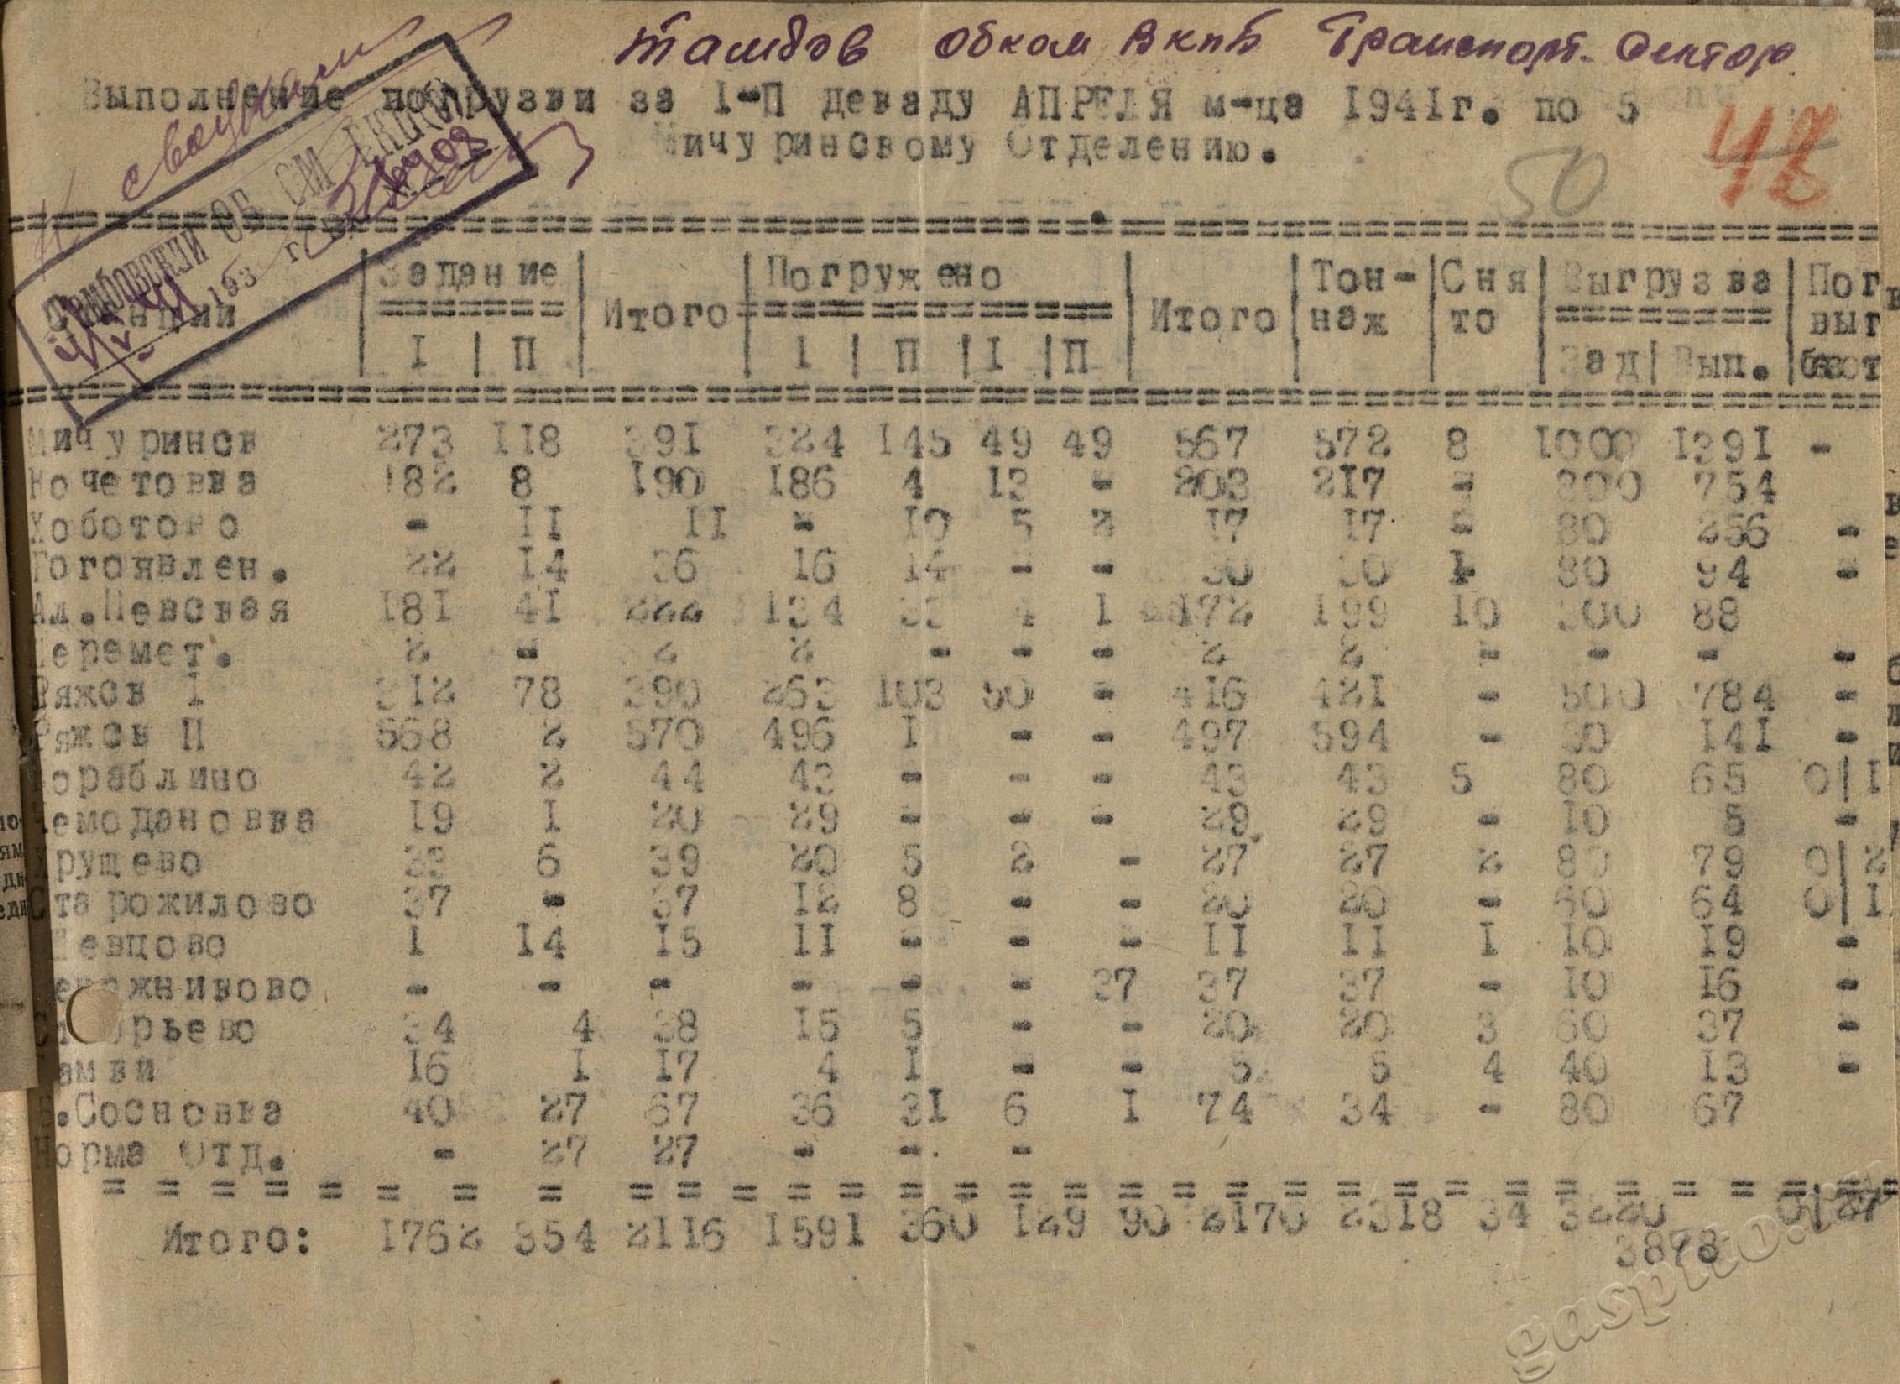 Тамбов Обком ВКПБ Транспорт. Сектор.
К сводкам
Выполнение погрузки за I-П декаду АПРЕЛЯ м-ца 1941г. по 5
Мичуринскому Отделению.
50
Тамбовский ОБ
193 г.
Задание Итого Погружено Итого Тон- Сня Выгрузка Пог
наж то выг
I П I П I П Зад Вып.
Мичуринск 273 118 391 324 145 49 49 567 572 8 1000 1391 -
Кочетовка 182 8 190 186 4 13 - 203 217 - 800 754
Хоботово - 11 11 - 10 5 2 17 17 - 80 256 -
Богоявлен. 22 14 36 16 14 - - 30 30 1 80 94 -
Ал.Невская 181 41 222 134 33 4 1 172 199 10 300 88
Шеремет. 2 - 2 2 - - - 2 2 - - - -
Ряжск 1 312 78 390 263 103 50 - 416 421 - 500 784 -
Ряжск П 568 2 570 496 1 - - 497 594 - 30 141 -
Кораблино 42 2 44 43 - - - 43 43 5 80 65 0|1
Чемодановка 19 1 20 29 - - - 29 29 - 10 5 -
Хрущево 33 6 39 20 5 2 - 27 27 2 80 79 0|2
Старожилово 37 - 37 12 8 - - 20 20 - 60 64 0|1
Шевцово 1 14 15 11 - - - 11 11 1 10 19 -
- - - - - - 37 37 37 - 10 16 -
34 4 38 15 5 - - 20 20 3 60 37 -
16 1 17 4 1 - - 5 5 4 40 13 -
.Сосновка 40 27 67 36 31 6 1 74 34 - 80 67
Норма Отд. - 27 27 - - -
Итого: 1762 354 2116 1591 360 129 90 2170 2318 34 3220 0|27
3878
gaspito.ru